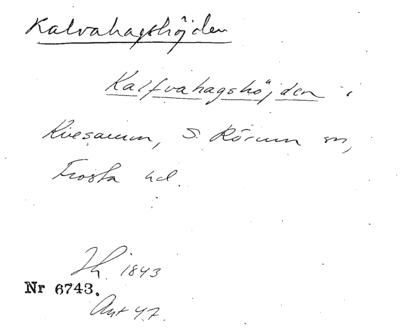 Kalvahagshöjden
Kalfvahagshöjden i
S. Rörum sn,
Frosta hd.
Th. 1843
Nr 6743.
Ant 47.